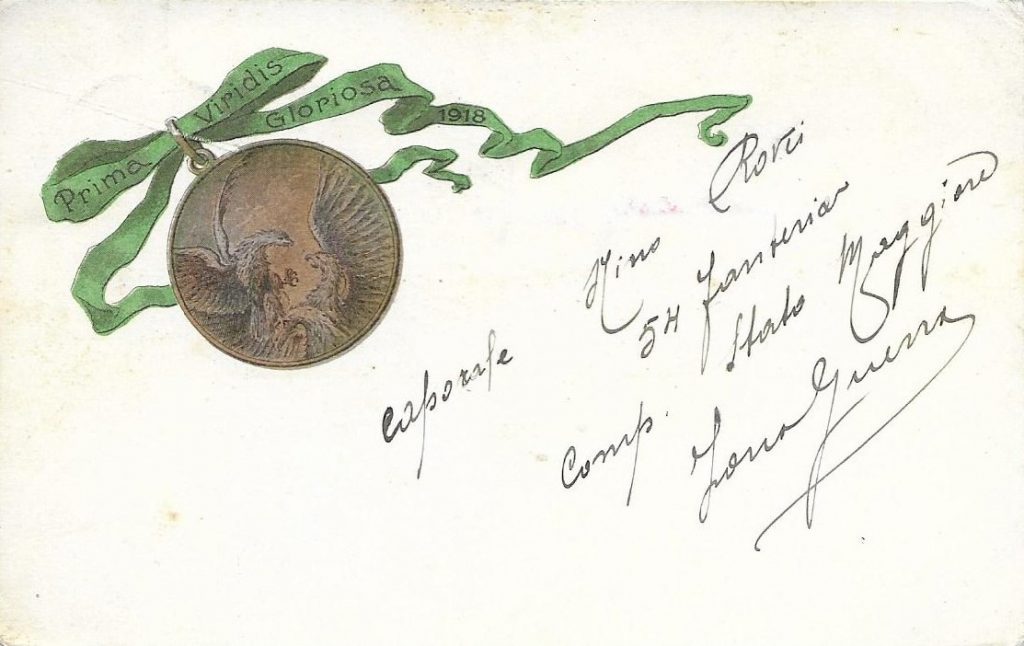 Prima Viridis Gloriosa 1918
caporale Nino Rovei
54 fanteria
Comp. Stato Maggiore
Zona Guerra